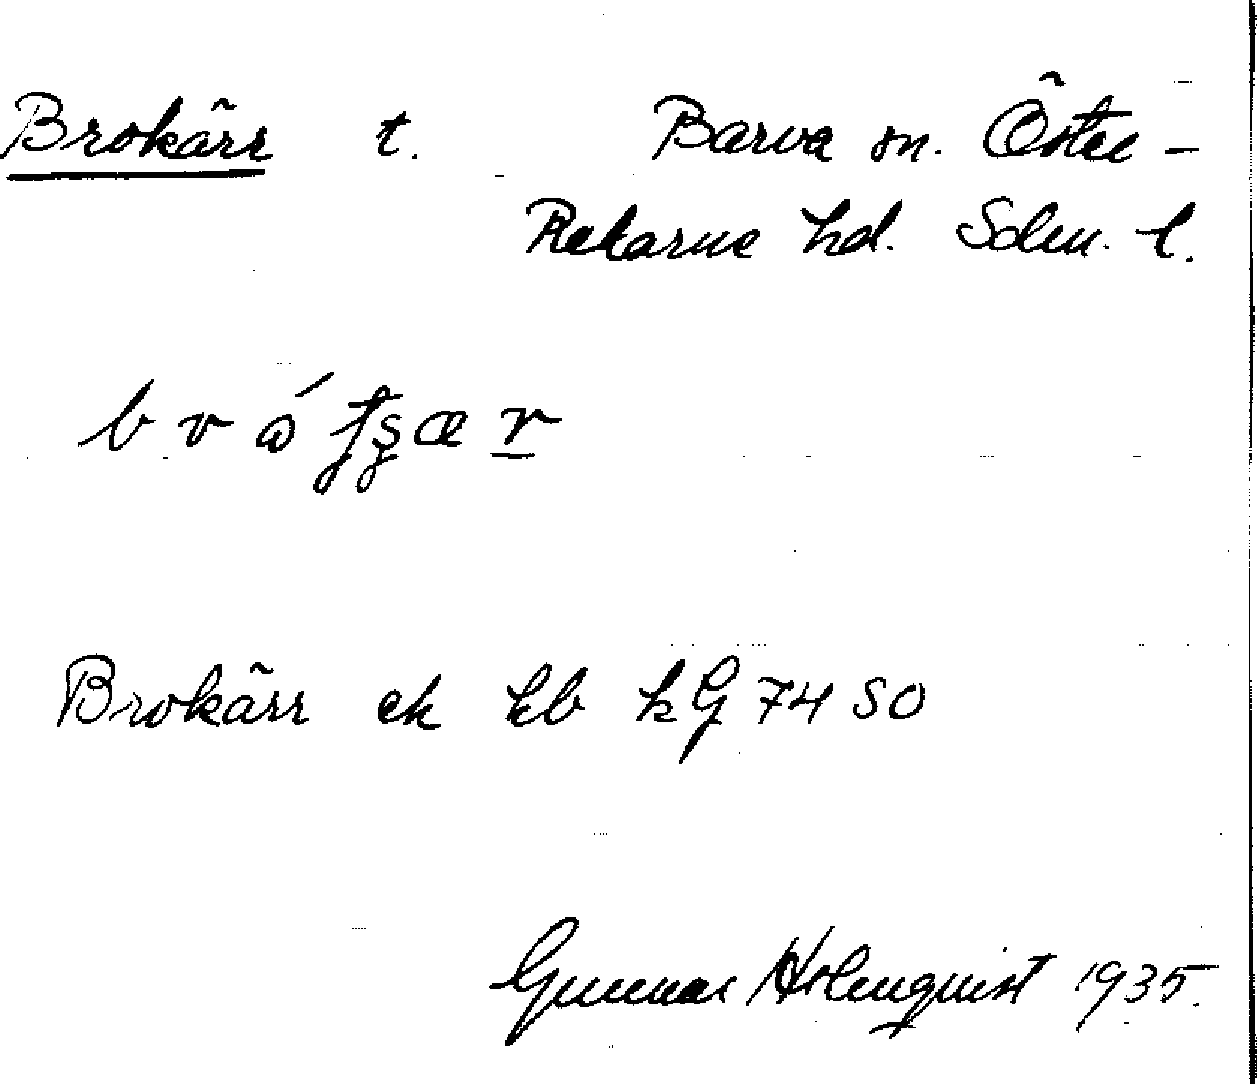 Brokärr t. Barva sn. Öster-
Rekarne hd. Sdm. l.
Brokärr ek hb kG 74 SO
Gunnar Holmquist 1935.